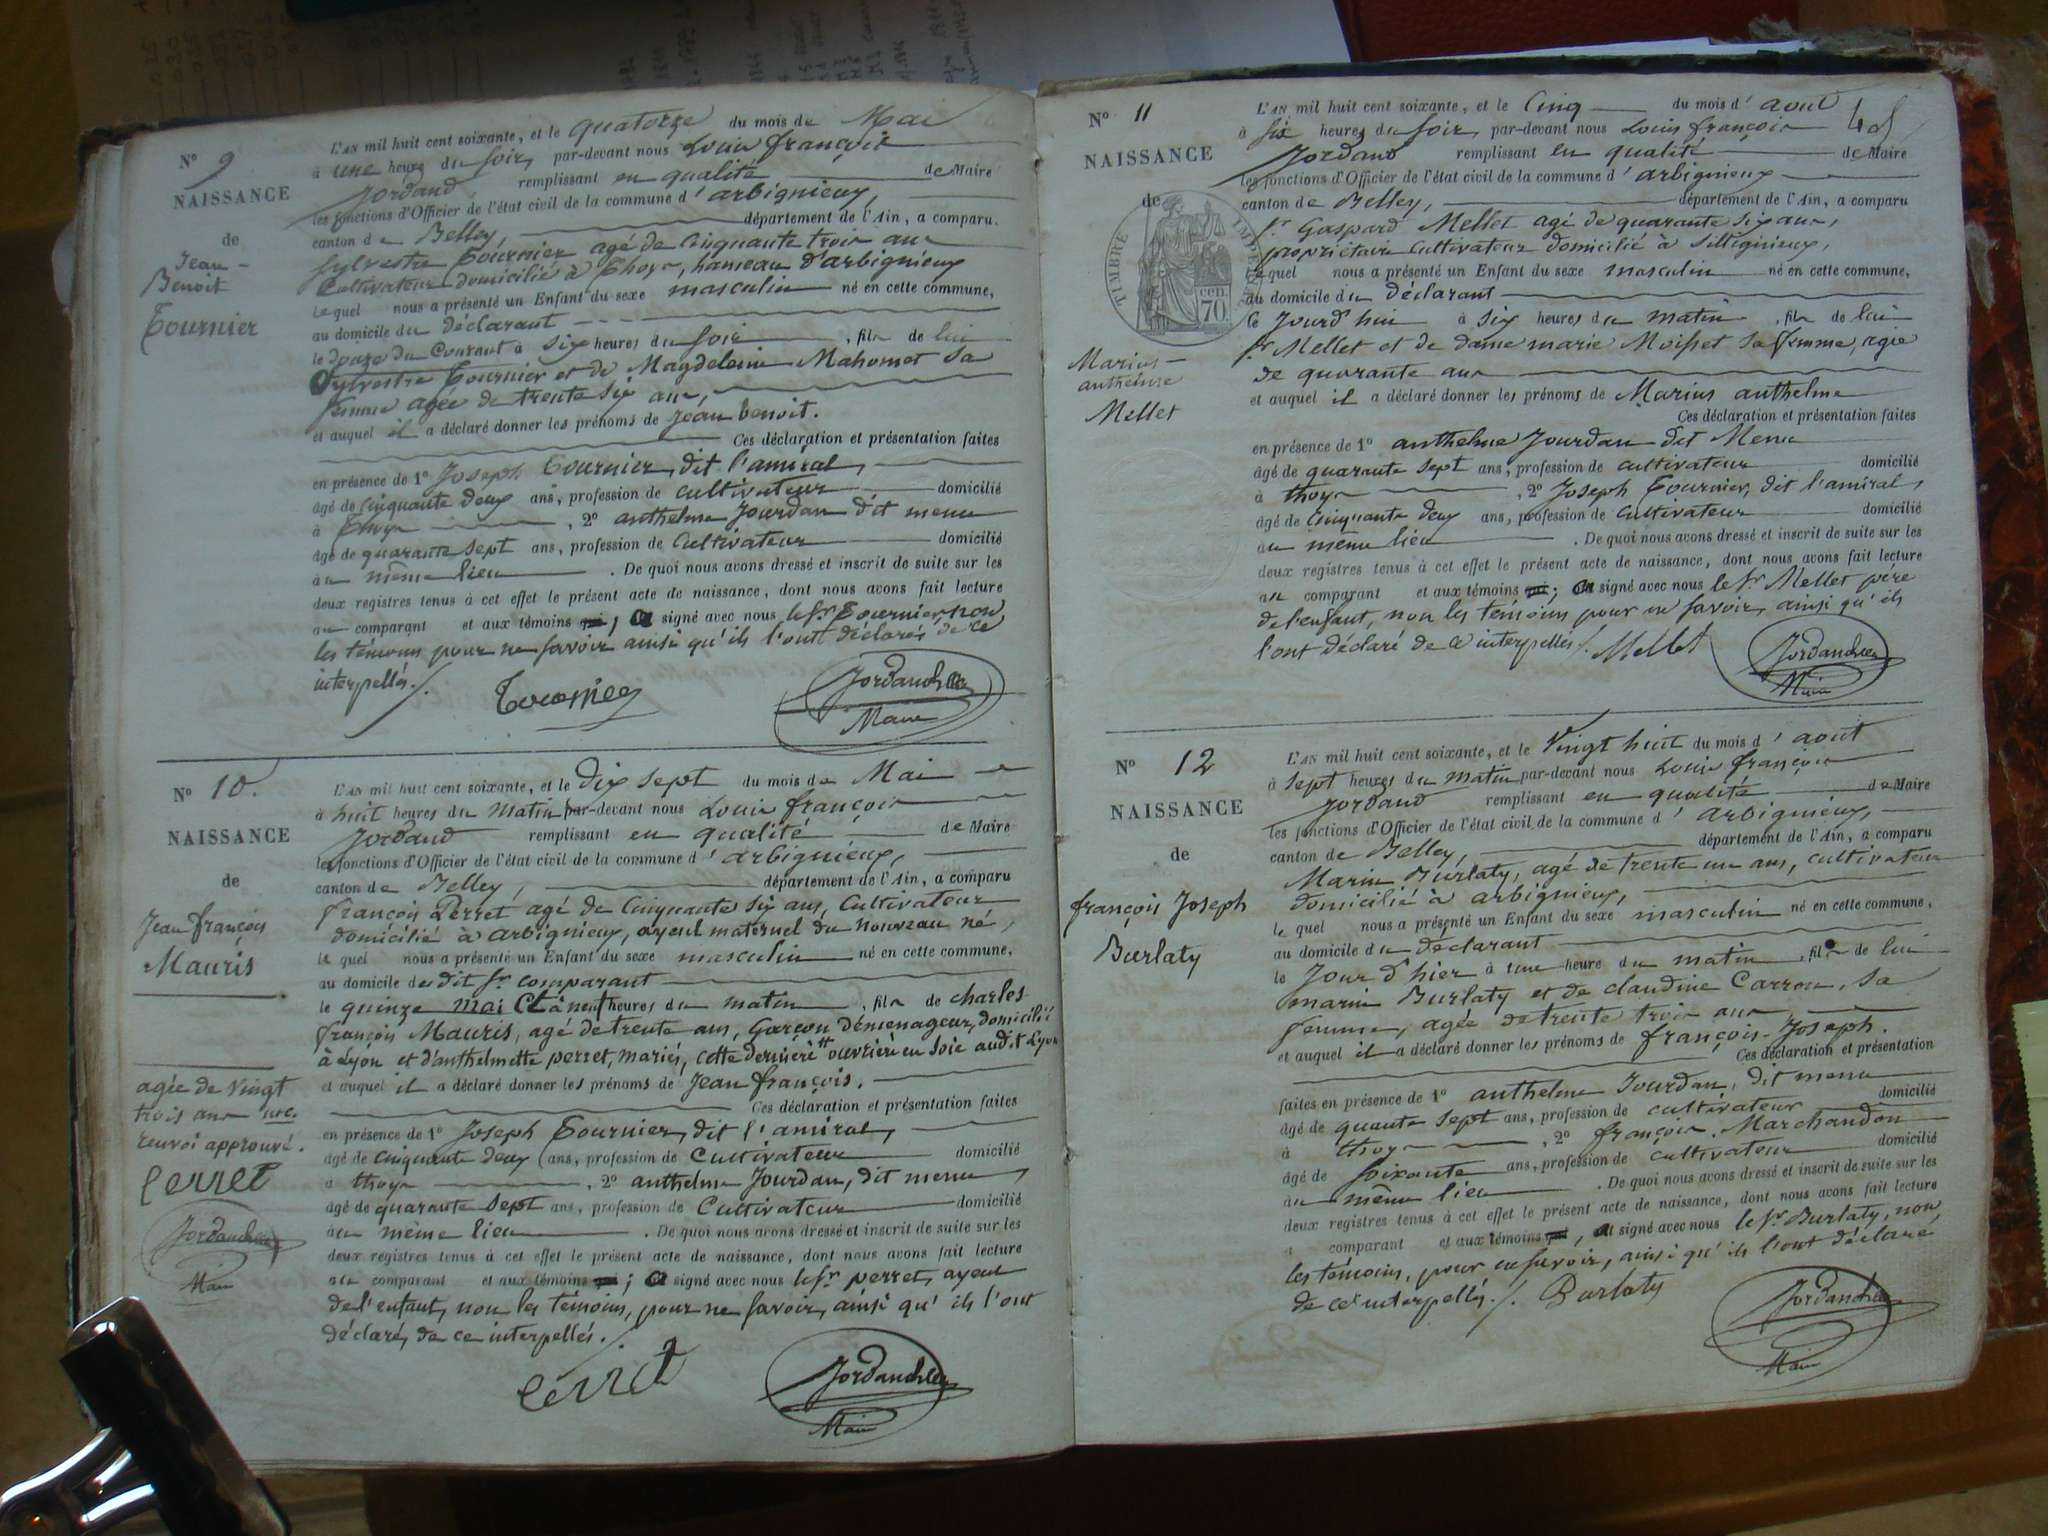 Nº 9
NAISSANCE
de
Jean-
Benoit
Tournier
L'AN mil huit cent soixante, et le quatorze du mois de Mai
à une heure du soir, par-devant nous Louis françois
Jordand remplissant en qualité de Maire
les fonctions d'Officier de l'état civil de la commune d'arbignieux,
canton de Belley, département de l'Ain, a comparu.
Sylvestre Tournier agé de Cinquante trois ans
Cultivateur domicilié à Thoys, hameau d'arbignieux
lequel nous a présenté un Enfant du sexe masculin né en cette commune,
au domicile du déclarant
le douze du Courant à six heures du soir, fils de lui
Sylvestre Tournier et de Magdeleine Mahomet sa
femme agée de trente six ans,
et auquel il a déclaré donner les prénoms de Jean benoit.
Ces déclaration et présentation faites
en présence de 1º Joseph Tournier, dit l'amiral,
âgé de cinquante deux ans, profession de cultivateur domicilié
à Thoys, 2º anthelme Jourdan dit menu
âgé de quarante sept ans, profession de Cultivateur domicilié
au même lieu. De quoi nous avons dressé et inscrit de suite sur les
deux registres tenus à cet effet le présent acte de naissance, dont nous avons fait lecture
au comparant et aux témoins ; a signé avec nous le sr Tournier, non
les témoins pour ne savoir ainsi qu'ils l'ont déclarés de ce
interpellés./.
Tournier
Jordand
Maire
Nº 10.
NAISSANCE
de
Jean françois
Mauris
L'AN mil huit cent soixante, et le dix sept du mois de Mai
à huit heures du matin par-devant nous Louis françois
Jordand remplissant en qualité de Maire
les fonctions d'Officier de l'état civil de la commune d'arbignieux,
canton de Belley, département de l'Ain, a comparu
françois Perret agé de Cinquante six ans, Cultivateur
domicilié à arbignieux, ayeul maternel du nouveau né,
lequel nous a présenté un Enfant du sexe masculin né en cette commune,
au domicile du dit sr comparant
le quinze mai Ct à neuf heures du matin, fils de charles
françois Mauris, agé de trente ans, Garçon déménageur, domicilié
à Lyon et d'anthelmette perret, mariés, cette dernière # ouvrière en soie audit Lyon
et auquel il a déclaré donner les prénoms de Jean françois.
Ces déclaration et présentation faites
en présence de 1º Joseph Tournier, dit l'amiral,
âgé de cinquante deux ans, profession de Cultivateur domicilié
à thoys, 2º anthelme Jourdan, dit menu,
âgé de quarante sept ans, profession de Cultivateur domicilié
au même lieu. De quoi nous avons dressé et inscrit de suite sur les
deux registres tenus à cet effet le présent acte de naissance, dont nous avons fait lecture
au comparant et aux témoins ; a signé avec nous le sr perret, ayeul
de l'enfant, non les témoins, pour ne savoir, ainsi qu'ils l'ont
déclaré, de ce interpellés./.
agée de vingt
trois ans
renvoi approuvé.
Perret
Jordand
Maire
Perret
Jordand
Maire
Nº 11
NAISSANCE
de
TIMBRE IMPÉRIAL
70 cen
Marius-
anthelme
Mellet
L'AN mil huit cent soixante, et le Cinq du mois d'aout
à six heures du soir, par-devant nous Louis françois
Jordand remplissant en qualité de Maire
les fonctions d'Officier de l'état civil de la commune d'arbignieux
canton de Belley, département de l'Ain, a comparu
sr Gaspard Mellet agé de quarante six ans,
propriétaire Cultivateur domicilié à sillignieux,
lequel nous a présenté un Enfant du sexe masculin né en cette commune,
au domicile du déclarant
le Jourd'hui à six heures du matin, fils de lui
sr Mellet et de dame marie Moisset sa femme, agée
de quarante ans
et auquel il a déclaré donner les prénoms de Marius anthelme
Ces déclaration et présentation faites
en présence de 1º anthelme Jourdan dit Menu
âgé de quarante sept ans, profession de cultivateur domicilié
à thoys, 2º Joseph Tournier, dit l'amiral,
âgé de Cinquante deux ans, profession de Cultivateur domicilié
au même lieu. De quoi nous avons dressé et inscrit de suite sur les
deux registres tenus à cet effet le présent acte de naissance, dont nous avons fait lecture
au comparant et aux témoins ; a signé avec nous le sr Mellet père
de l'enfant, non les témoins pour ne savoir, ainsi qu'ils
l'ont déclaré de ce interpellés./. Mellet
Jordand
Maire
Nº 12
NAISSANCE
de
françois Joseph
Burlaty
L'AN mil huit cent soixante, et le Vingt huit du mois d'aout
à sept heures du matin par-devant nous Louis françois
Jordand remplissant en qualité de Maire
les fonctions d'Officier de l'état civil de la commune d'arbignieux,
canton de Belley, département de l'Ain, a comparu
Marin Burlaty, agé de trente un ans, cultivateur
domicilié à arbignieux,
lequel nous a présenté un Enfant du sexe masculin né en cette commune,
au domicile du déclarant
le Jour d'hier à une heure du matin, fils de lui
marin Burlaty et de claudine Carron, sa
femme, agée de trente trois ans
et auquel il a déclaré donner les prénoms de françois-Joseph.
Ces déclaration et présentation
faites en présence de 1º anthelme Jourdan, dit menu
âgé de quante sept ans, profession de cultivateur domicilié
à thoys, 2º françois Marchandon
âgé de soixante ans, profession de cultivateur domicilié
au même lieu. De quoi nous avons dressé et inscrit de suite sur les
deux registres tenus à cet effet le présent acte de naissance, dont nous avons fait lecture
a comparant et aux témoins , a signé avec nous le sr Burlaty, non
les témoins, pour ne savoir, ainsi qu'ils l'ont déclaré
de ce interpellés./. Burlaty
Jordand
Maire